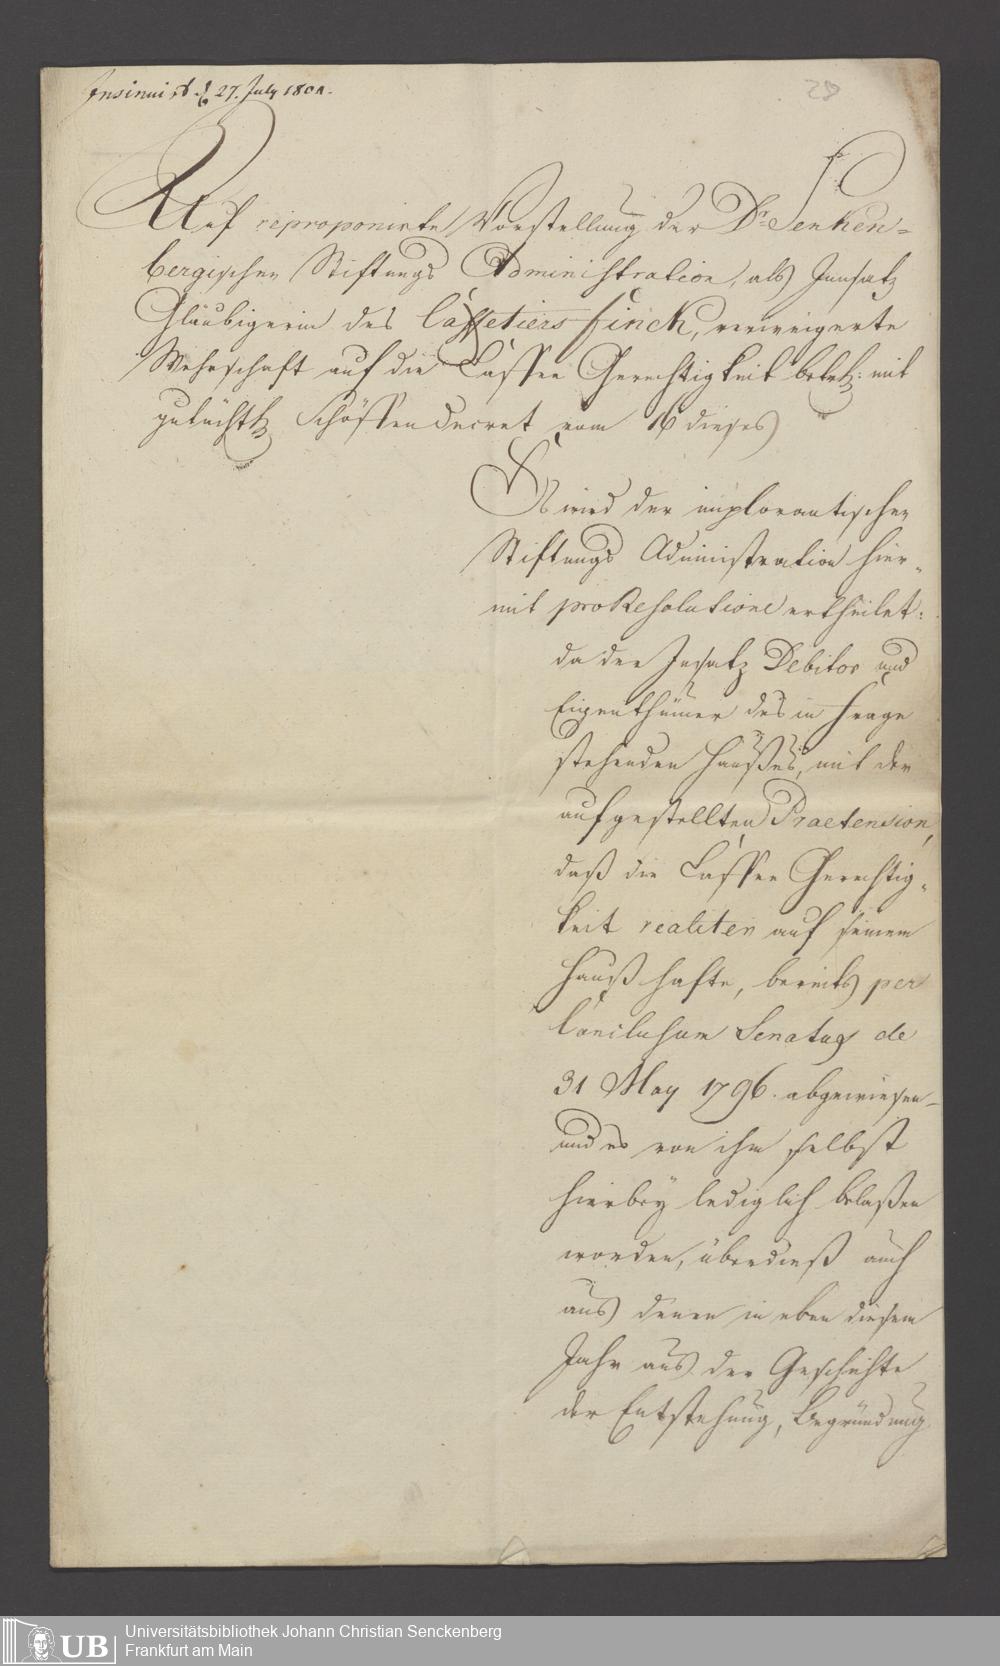 Insinuirt d. 27. July 1801.
28
Auf reproponirte Vorstellung der Dr. Senken=
bergischen Stiftungs Administration, als Innsatz
Gläubigerin des Caffetiers Finck, verweigerte
Wehrschaft auf die Caffee Gerechtigkeit betr: mit
Schöffendecret vom 16 dieses
Es wird der implorantischen
Stiftungs Administration hier=
mit pro Resolutione ertheilet:
da der Insatz Debitor und
Eigenthümer des in Frage
stehenden Haußes, mit der
aufgestellten Praetension,
daß die Caffee Gerechtig=
keit realiter auf seinem
Hauß hafte, bereits per
Conclusum Senatus de
31 May 1796. abgewiesen
und es von ihm selbst
hierbey lediglich belaßen
worden, überdieß auch
aus denen in eben diesem
Jahr aus der Geschichte
der Entstehung, Begründung
Universitätsbibliothek Johann Christian Senckenberg
UB
Frankfurt am Main